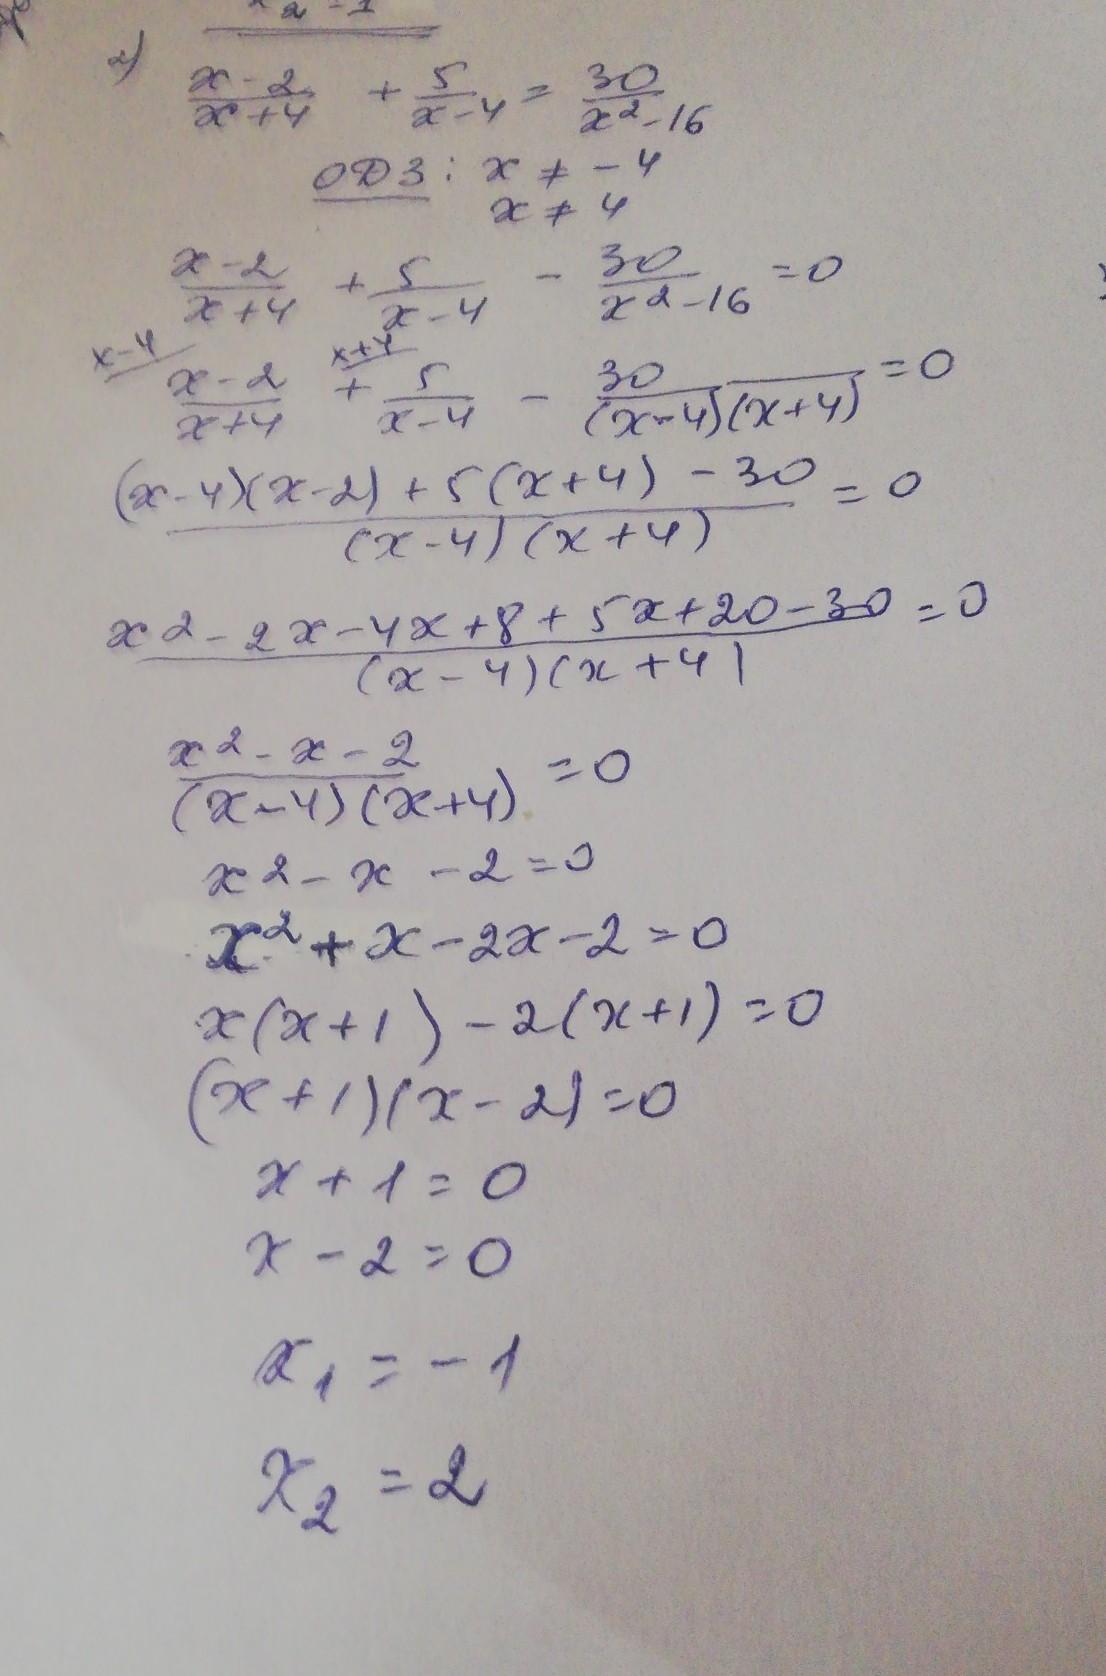 x₂ = 1
2)
(x-2)/(x+4) + 5/(x-4) = 30/(x²-16)
ОДЗ: x ≠ -4
x ≠ 4
(x-2)/(x+4) + 5/(x-4) - 30/(x²-16) = 0
x-4 x+4
(x-2)/(x+4) + 5/(x-4) - 30/((x-4)(x+4)) = 0
((x-4)(x-2)+5(x+4)-30)/((x-4)(x+4)) = 0
(x²-2x-4x+8+5x+20-30)/((x-4)(x+4)) = 0
(x²-x-2)/((x-4)(x+4)) = 0
x²-x-2=0
x²+x-2x-2=0
x(x+1)-2(x+1)=0
(x+1)(x-2)=0
x+1=0
x-2=0
x₁=-1
x₂=2